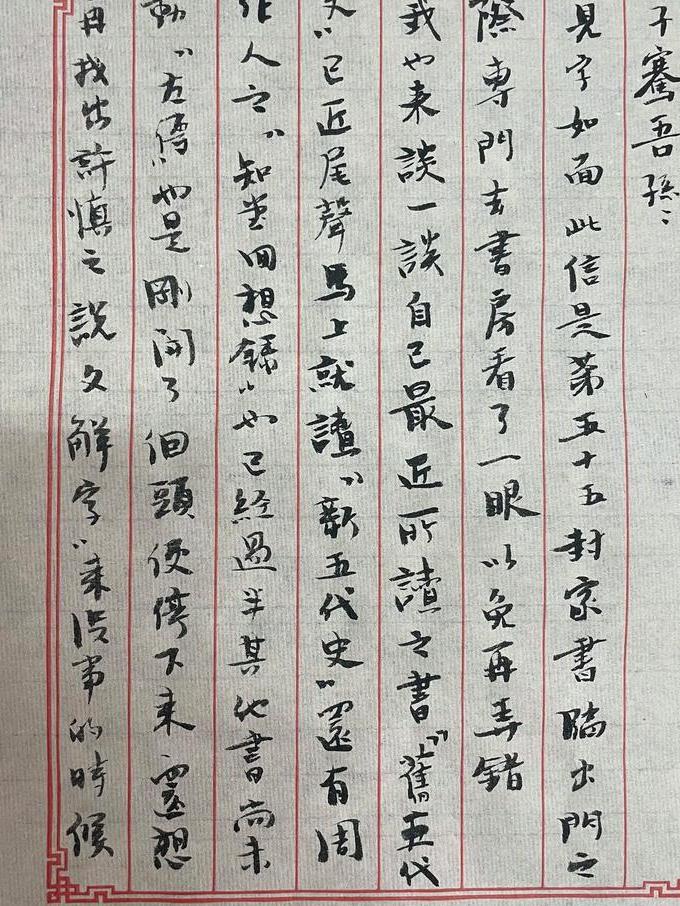 子騫吾孫：
見字如面此信是第五十五封家書臨出門之
際專門去書房看了一眼以免再弄錯
我也来談一談自己最近所讀之書“舊五代
史”已近尾聲馬上就讀“新五代史”還有周
作人之“知堂回想錄”也已経過半其他書尚未
動“左傳”也是剛開了個頭便停下来還想
再找出許慎之說文解字”来没事的時候